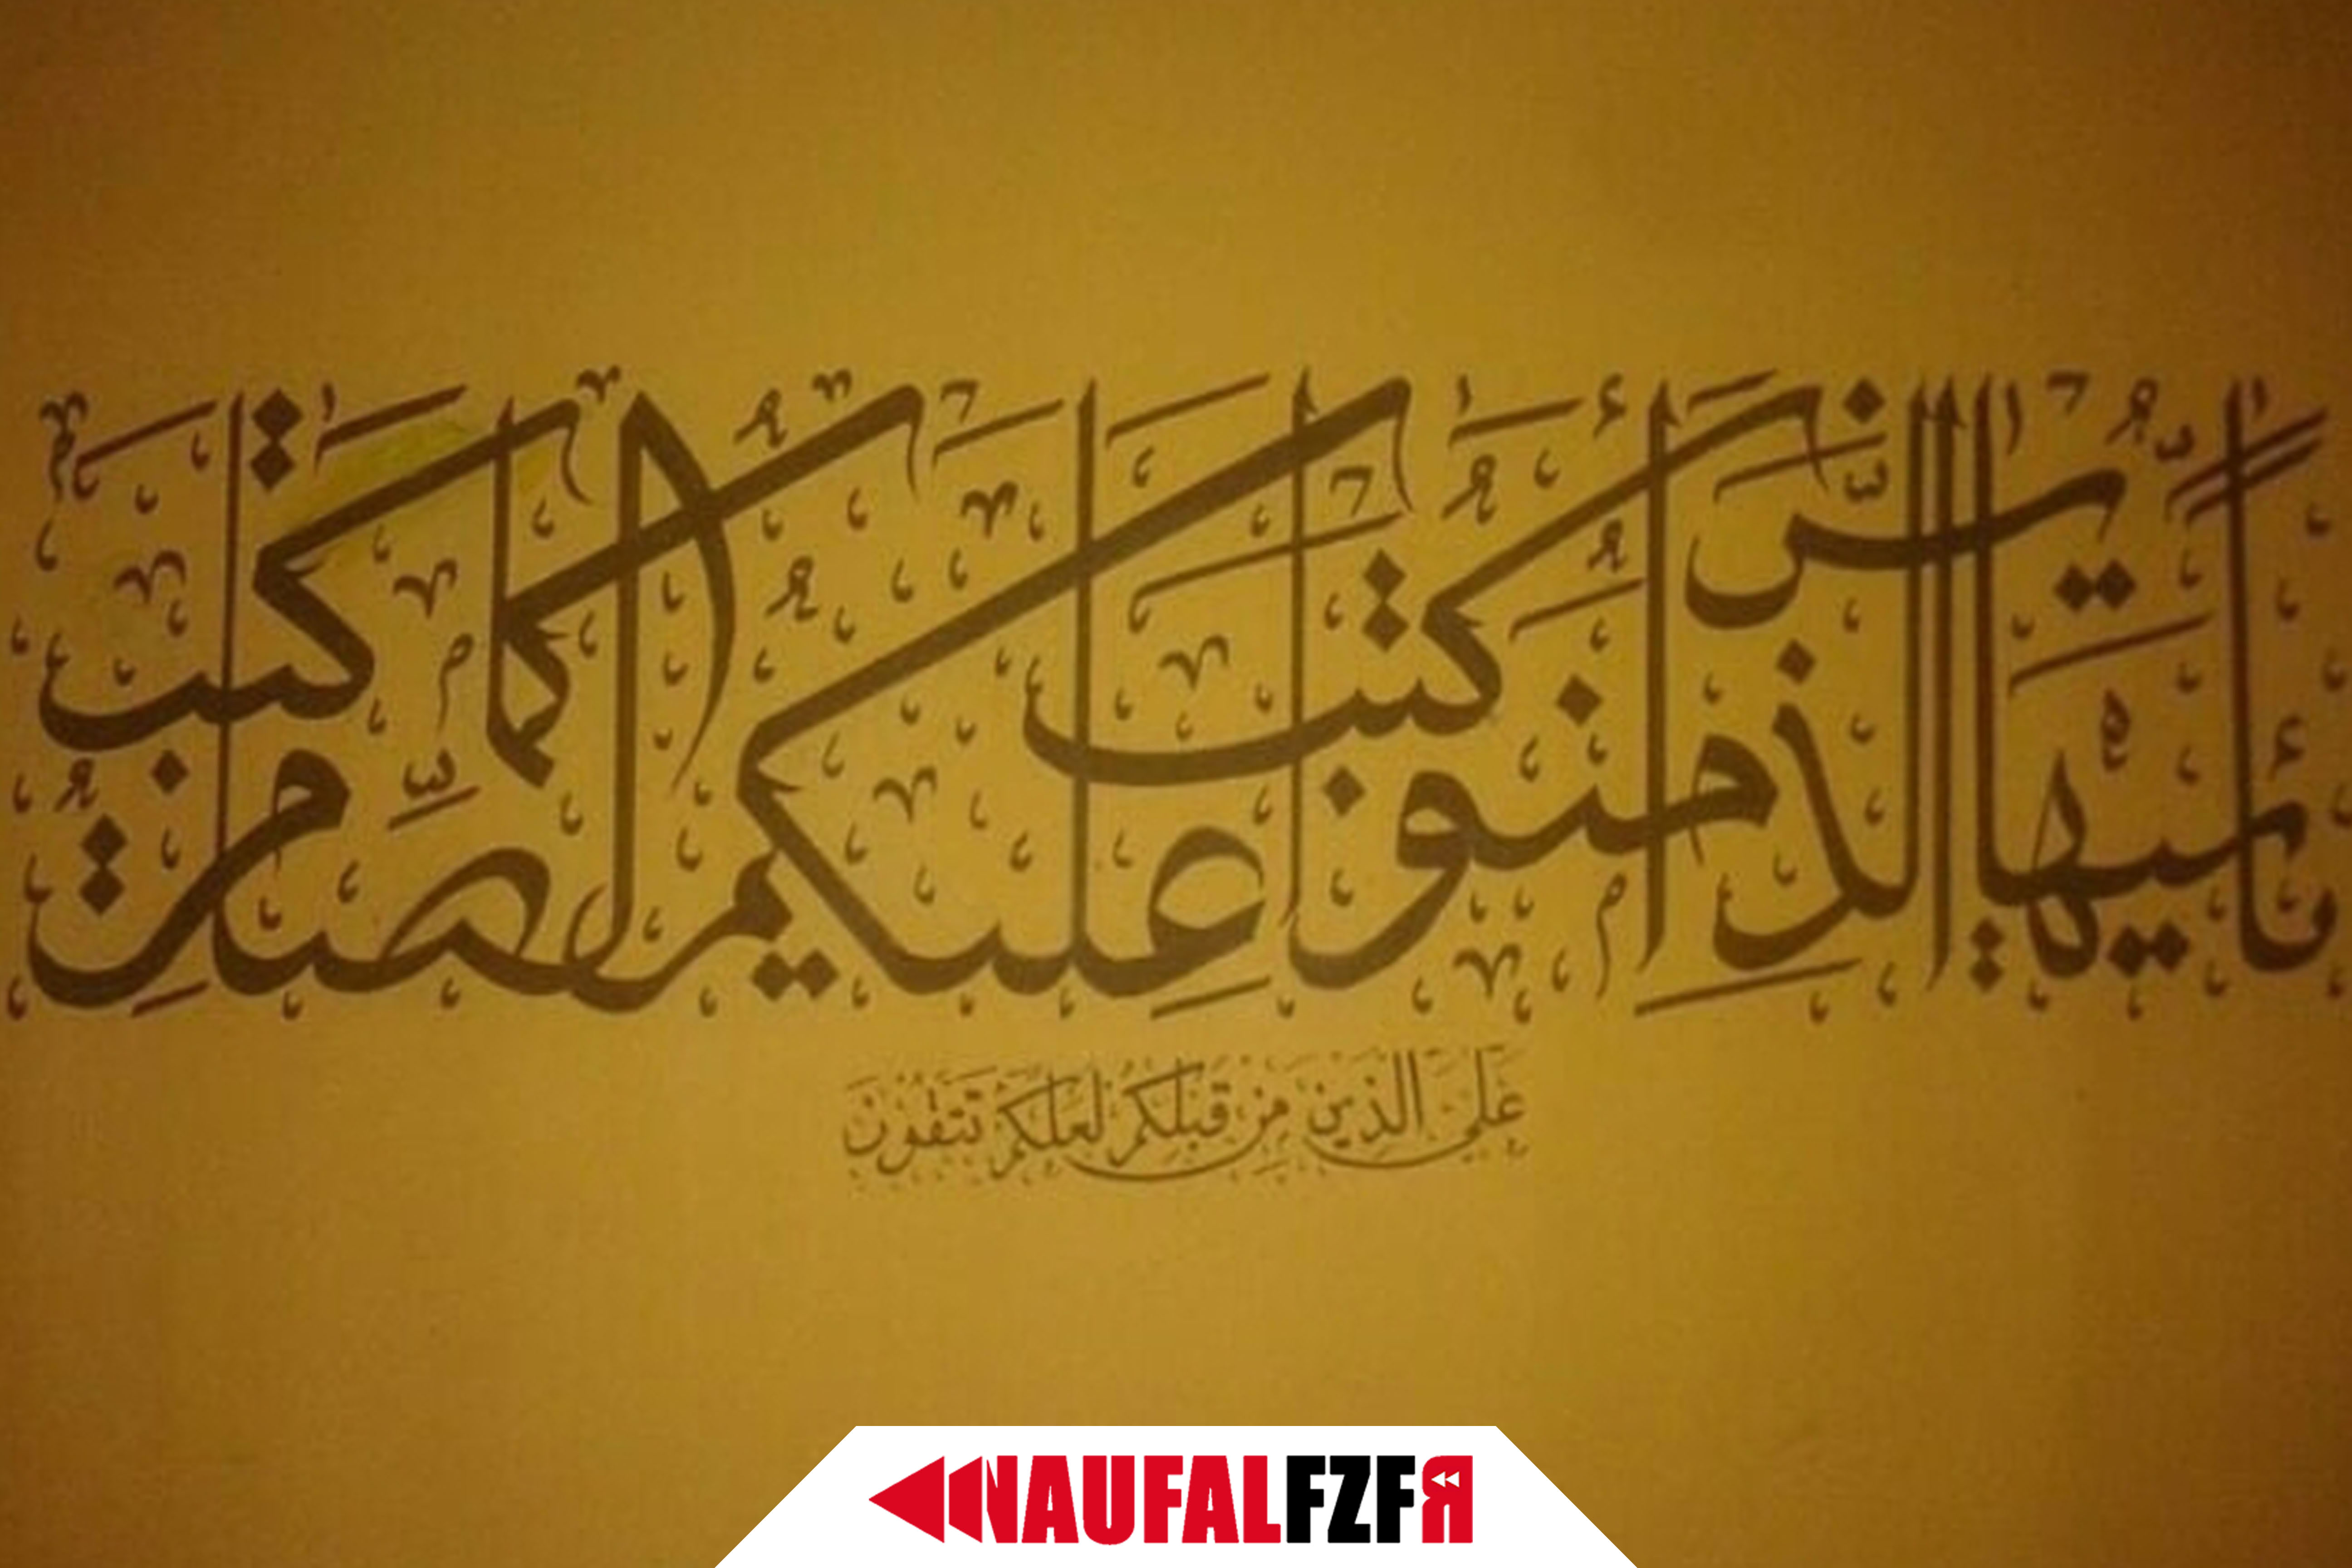 يا أيها الذين آمنوا كتب عليكم الصيام كما كتب
على الذين من قبلكم لعلكم تتقون
NAUFALFZFR